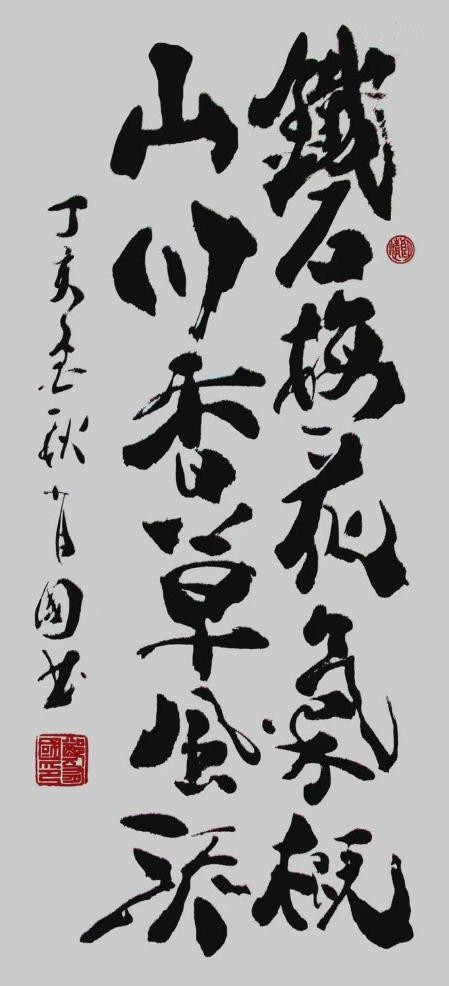 鐵石梅花氣概
山川香草風流
丁亥金秋有國书